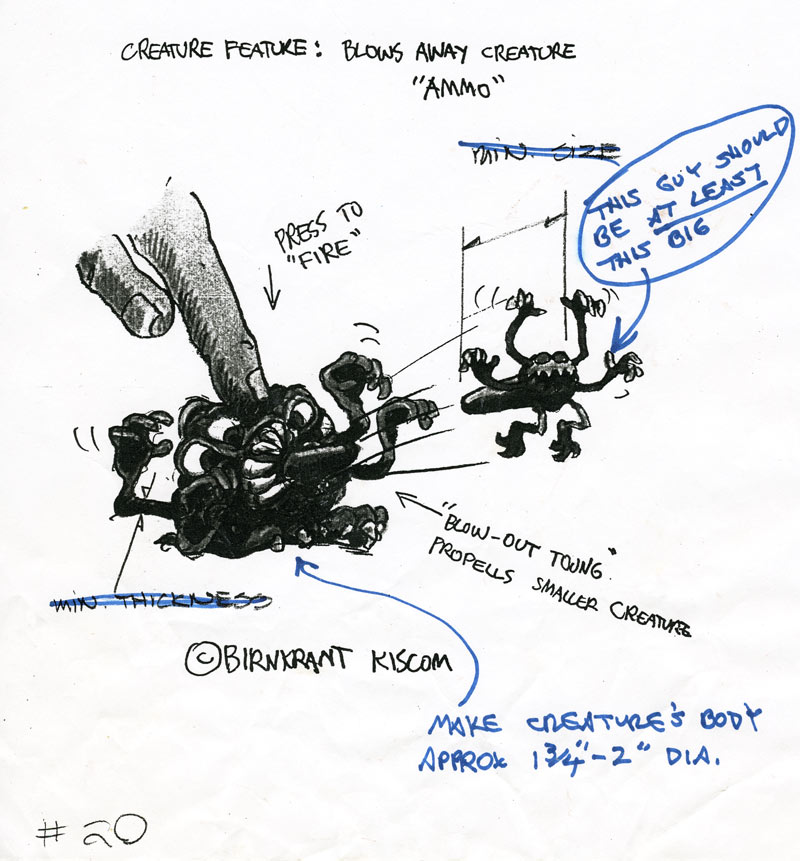 CREATURE FEATURE: BLOWS AWAY CREATURE
"AMMO"
MIN. SIZE
THIS GUY SHOULD
BE AT LEAST
THIS BIG
PRESS TO
"FIRE"
"BLOW-OUT TOUNG"
PROPELLS SMALLER CREATURE
MIN. THICKNESS
©BIRNKRANT KISCOM
MAKE CREATURE'S BODY
APPROX 1 3/4"-2" DIA.
# 20